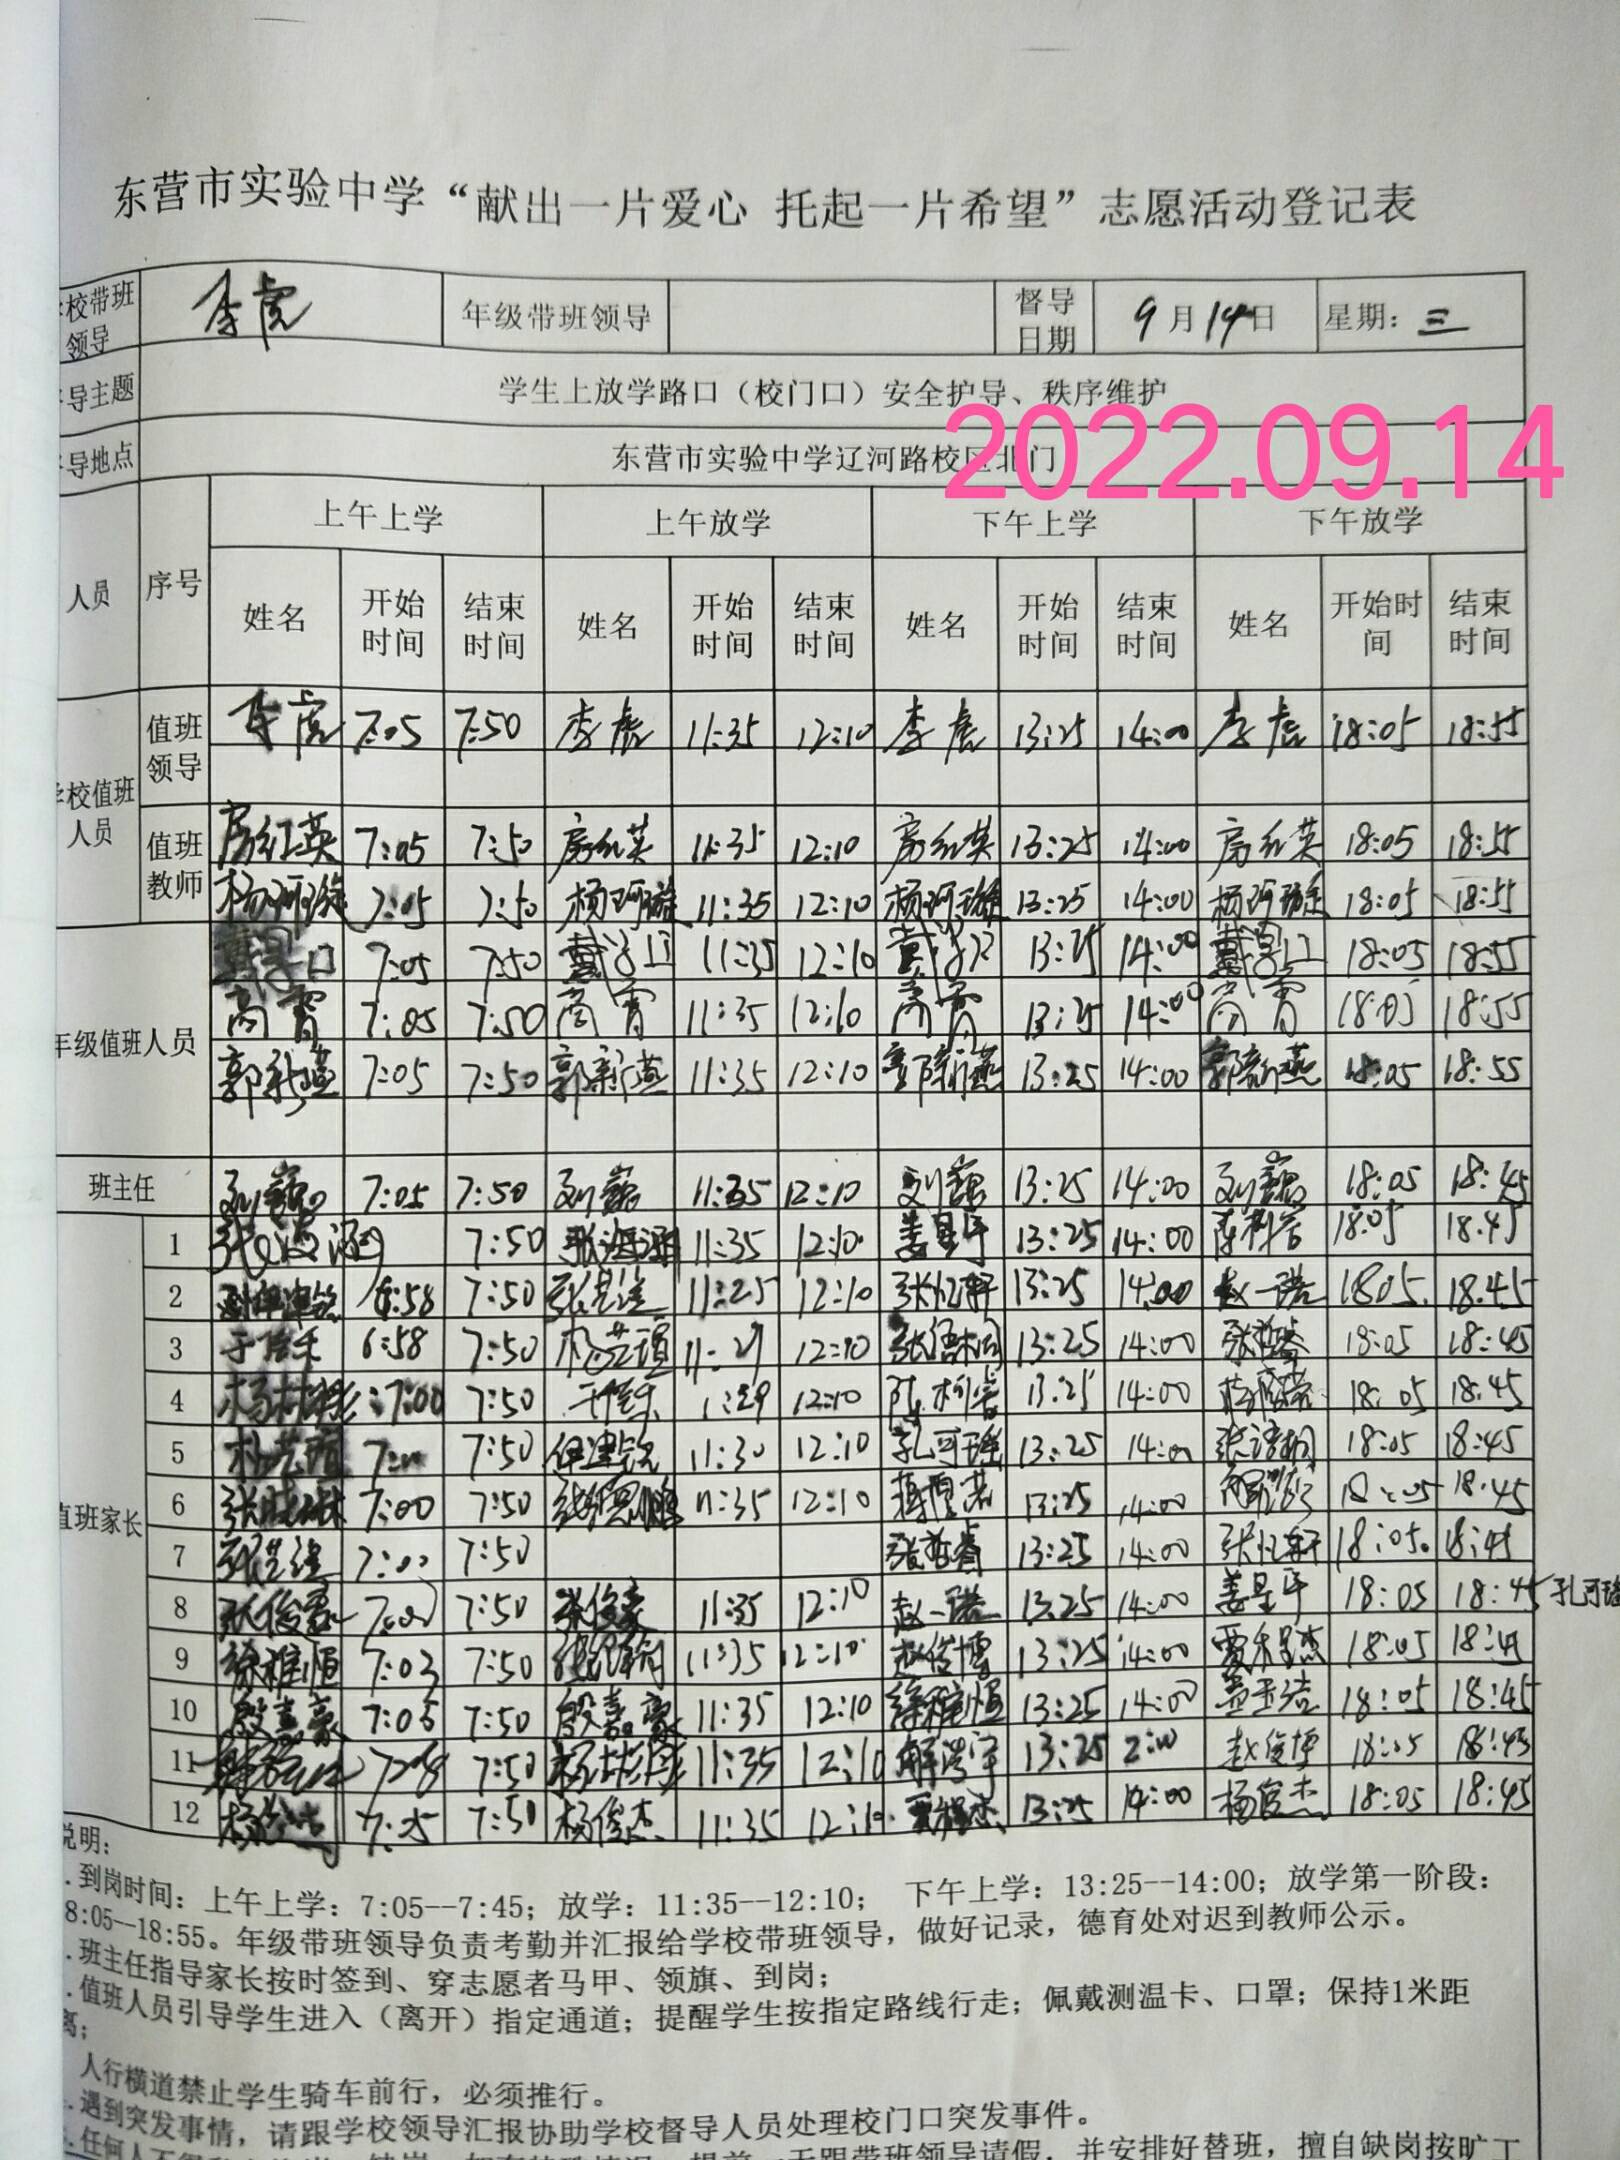 东营市实验中学“献出一片爱心 托起一片希望”志愿活动登记表
校带班领导 李虎 年级带班领导 督导日期 9月14日 星期：三
导主题 学生上放学路口（校门口）安全护导、秩序维护
2022.09.14
导地点 东营市实验中学辽河路校区北门
人员 序号 上午上学 上午放学 下午上学 下午放学
姓名 开始时间 结束时间 姓名 开始时间 结束时间 姓名 开始时间 结束时间 姓名 开始时间 结束时间
校值班人员 值班领导 李虎 7:05 7:50 李虎 11:35 12:10 李虎 13:25 14:00 李虎 18:05 18:55
值班教师 房红英 7:05 7:50 房红英 11:35 12:10 房红英 13:25 14:00 房红英 18:05 18:55
杨珂璇 7:05 7:50 杨珂璇 11:35 12:10 杨珂璇 13:25 14:00 杨珂璇 18:05 18:55
年级值班人员 7:05 7:50 11:35 12:10 13:25 14:00 18:05 18:55
高霄 7:05 7:50 高霄 11:35 12:10 高霄 13:25 14:00 高霄 18:05 18:55
郭新燕 7:05 7:50 郭新燕 11:35 12:10 郭新燕 13:25 14:00 郭新燕 18:05 18:55
班主任 刘巍 7:05 7:50 刘巍 11:35 12:10 刘巍 13:25 14:00 刘巍 18:05 18:45
值班家长 1 7:50 11:35 12:10 姜星宇 13:25 14:00 18:05 18.45
2 6:58 7:50 11:25 12:10 张忆轩 13:25 14:00 赵一诺 1805 18.45
3 6:58 7:50 杨芸瑄 11:27 12:10 张语桐 13:25 14:00 张哲睿 18:05 18:45
4 7:00 7:50 12:10 13:25 14:00 18:05 18:45
5 7:50 11:30 12:10 孔可瑶 13:25 14:00 张语桐 18:05 18:45
6 7:00 7:50 11:35 12:10 13:25 14:00 18:05 18:45
7 7:00 7:50 张哲睿 13:25 14:00 张忆轩 18:05 18:45
8 张俊豪 7:00 7:50 张俊豪 11:35 12:10 赵一诺 13:25 14:00 姜星宇 18:05 18:45 孔可瑶
9 徐雅恒 7:03 7:50 11:35 12:10 赵俊博 13:25 14:00 贾程杰 18:05 18:45
10 殷嘉豪 7:05 7:50 殷嘉豪 11:35 12:10 徐雅恒 13:25 14:00 18:05 18:45
11 7:50 11:35 12:10 解浩宇 13:25 2:00 赵俊博 18:05 18:45
12 7:05 7:50 杨俊杰 11:35 12:10 贾程杰 13:25 14:00 杨俊杰 18:05 18:45
说明：
.到岗时间：上午上学：7:05--7:45；放学：11:35--12:10； 下午上学：13:25--14:00；放学第一阶段：
8:05--18:55。年级带班领导负责考勤并汇报给学校带班领导，做好记录，德育处对迟到教师公示。
.班主任指导家长按时签到、穿志愿者马甲、领旗、到岗；
.值班人员引导学生进入（离开）指定通道；提醒学生按指定路线行走；佩戴测温卡、口罩；保持1米距
离；
人行横道禁止学生骑车前行，必须推行。
.遇到突发事情，请跟学校领导汇报协助学校督导人员处理校门口突发事件。
.任何人不得 提前一天跟带班领导请假，并安排好替班，擅自缺岗按旷工